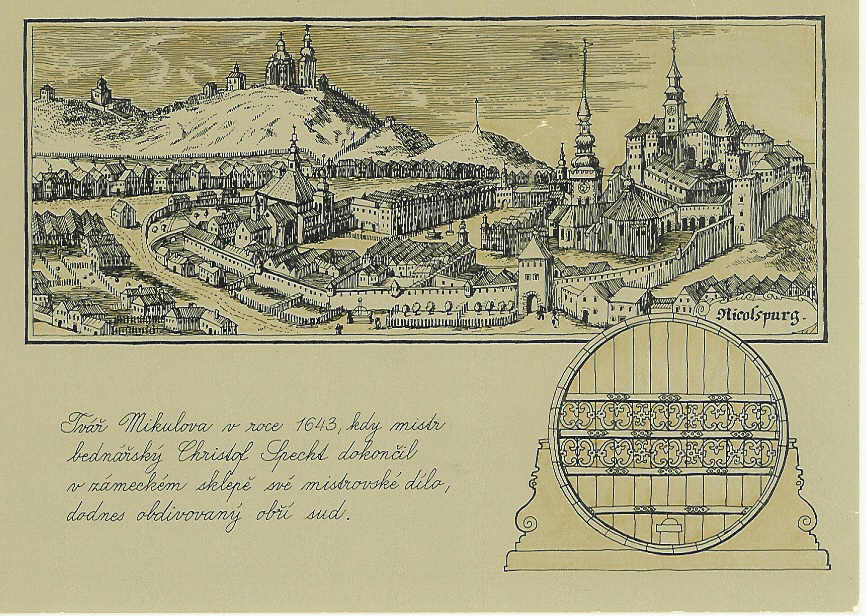 Nicolspurg.
Tvář Mikulova v roce 1643, kdy mistr
bednářský Christof Specht dokončil
v zámeckém sklepě své mistrovské dílo,
dodnes obdivovaný obří sud.